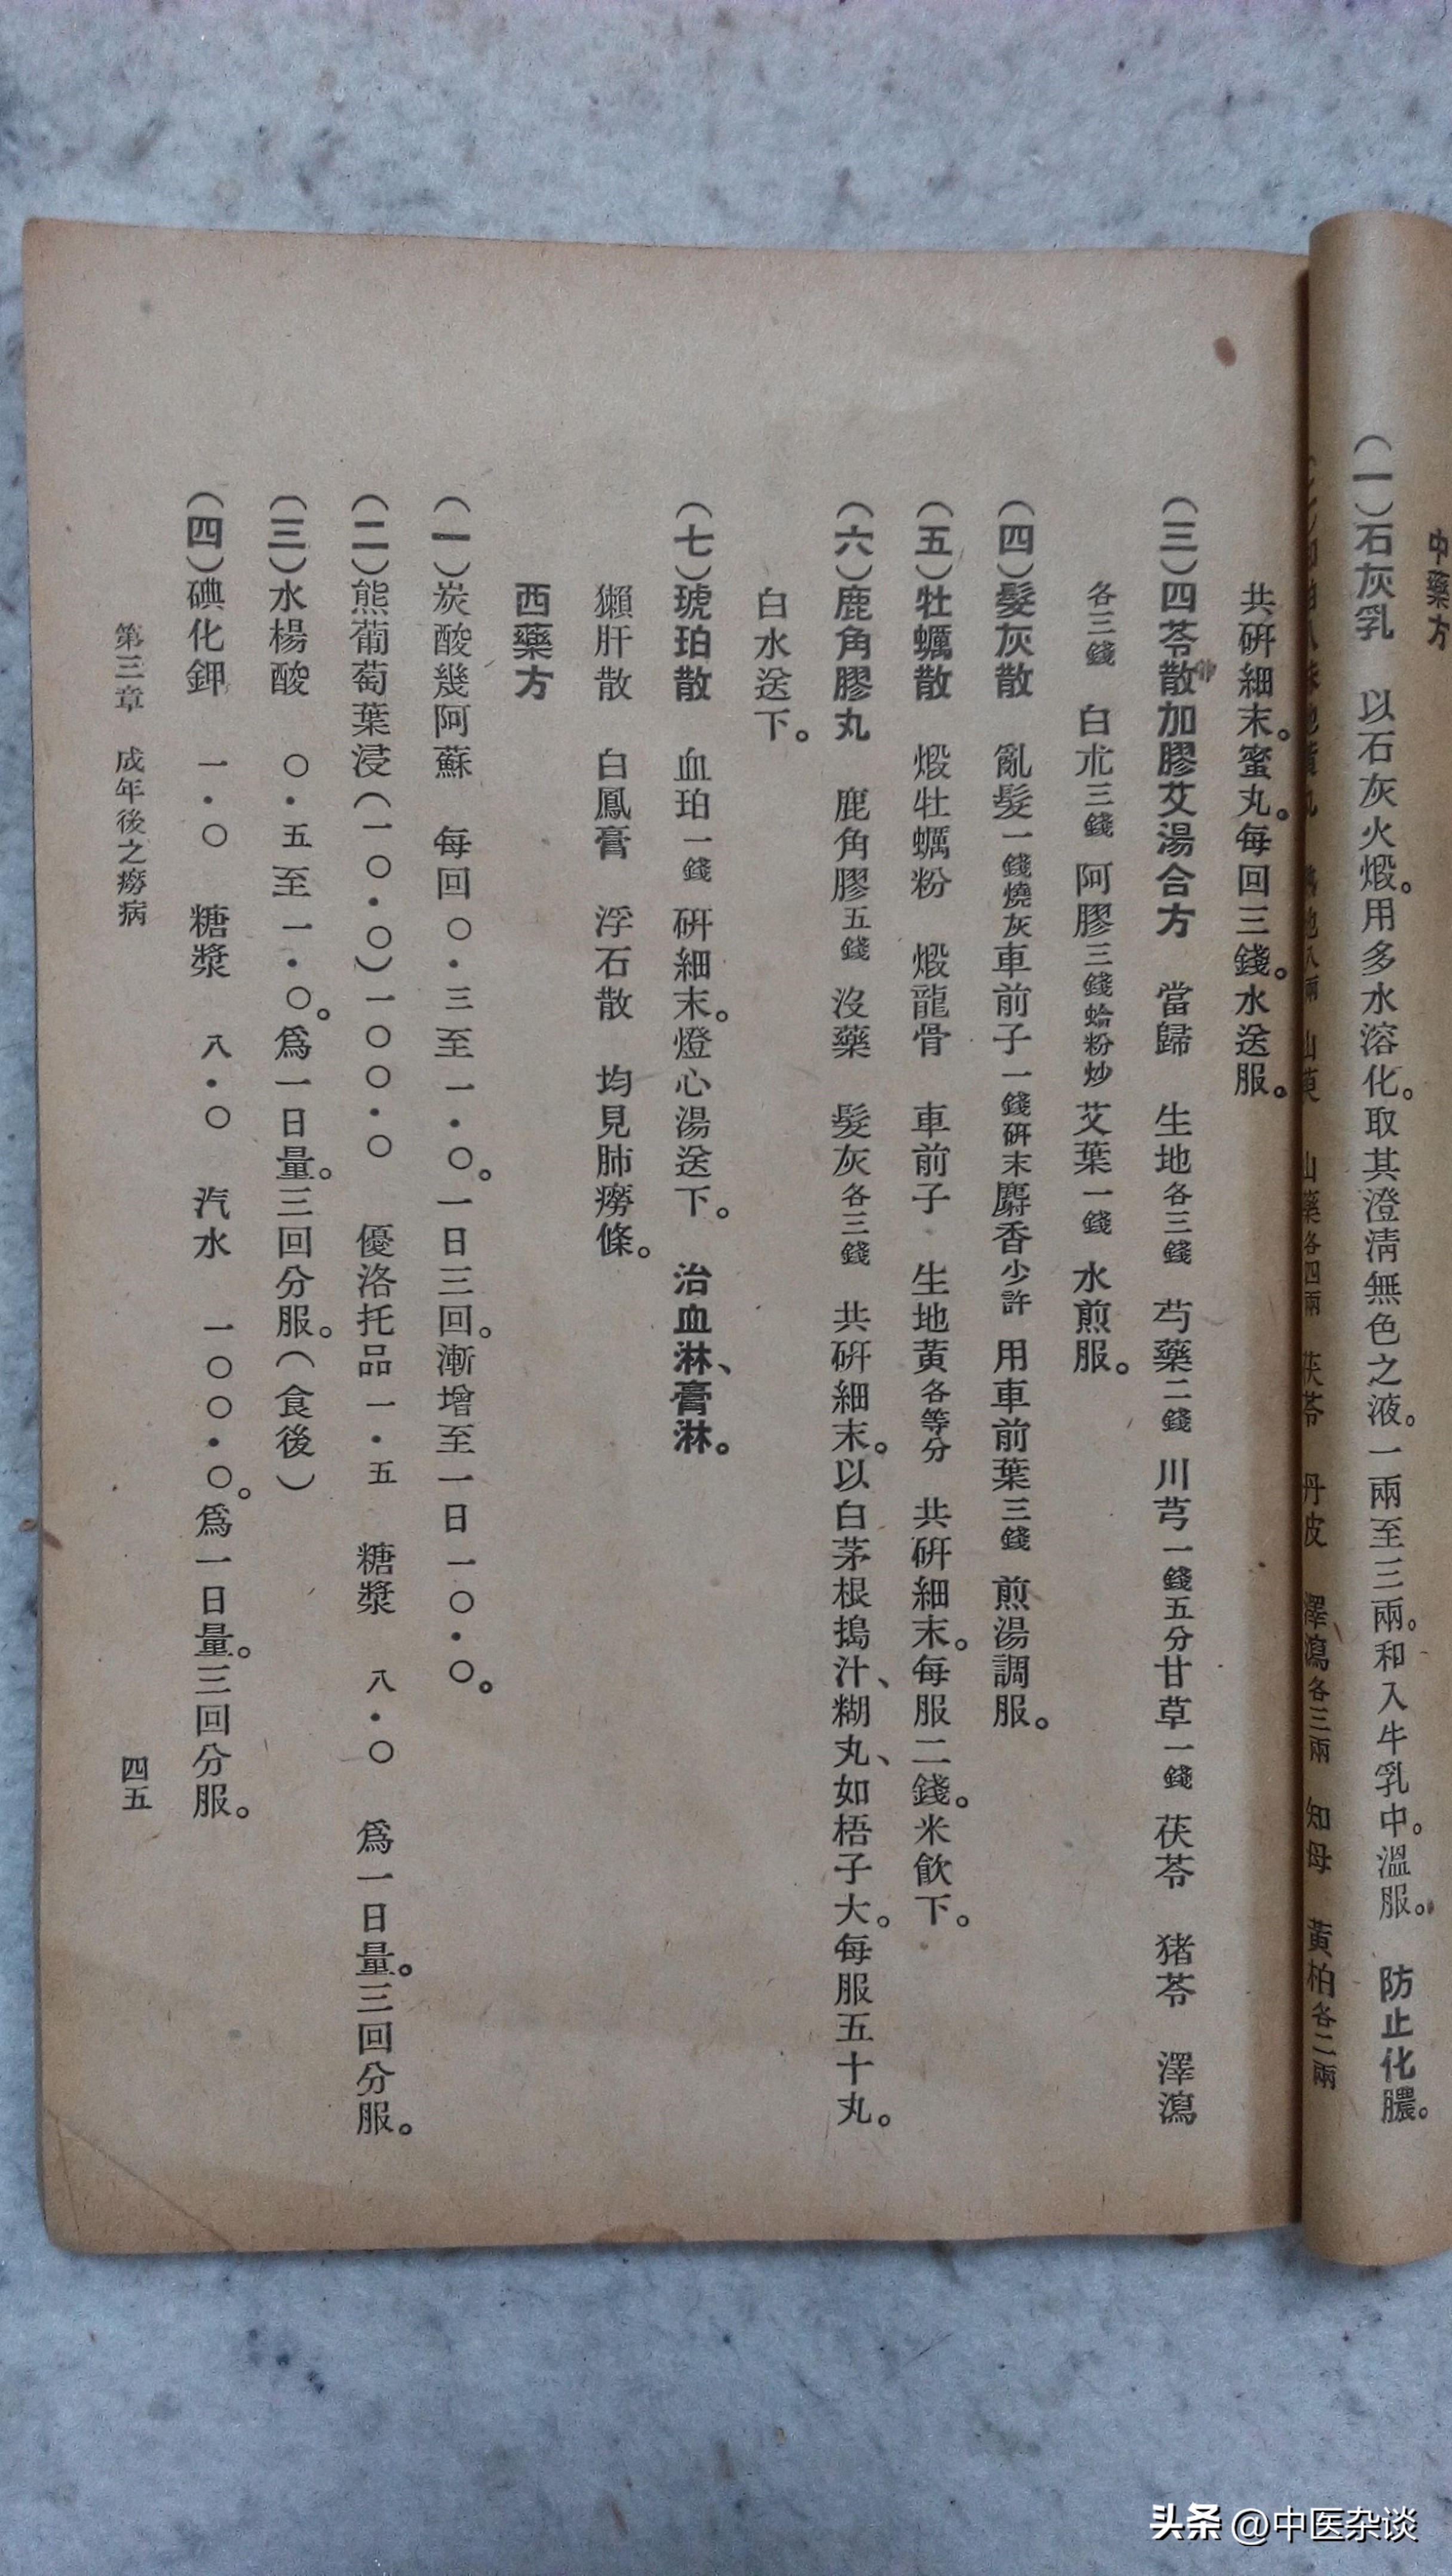 中藥方
(一)石灰乳　以石灰火煅。用多水溶化。取其澄淸無色之液。一兩至三兩。和入牛乳中。溫服。　防止化膿。
山藥各四兩　茯苓　丹皮　澤瀉各三兩　知母　黃柏各二兩
共硏細末。蜜丸。每回三錢。水送服。
(三)四苓散加膠艾湯合方　當歸　生地各三錢　芍藥二錢　川芎一錢五分甘草一錢　茯苓　猪苓　澤瀉
各三錢　白朮三錢　阿膠三錢蛤粉炒　艾葉一錢　水煎服。
(四)髮灰散　亂髮一錢燒灰車前子一錢硏末麝香少許　用車前葉三錢　煎湯調服。
(五)牡蠣散　煅牡蠣粉　煅龍骨　車前子　生地黃各等分　共硏細末。每服二錢。米飮下。
(六)鹿角膠丸　鹿角膠五錢　沒藥　髮灰各三錢　共硏細末。以白茅根搗汁、糊丸、如梧子大。每服五十丸。
白水送下。
(七)琥珀散　血珀一錢　硏細末。燈心湯送下。　治血淋、膏淋。
獺肝散　白鳳膏　浮石散　均見肺癆條。
西藥方
(一)炭酸幾阿蘇　每回〇・三至一・〇。一日三回。漸增至一日一〇・〇。
(二)熊葡萄葉浸(一〇・〇)一〇〇・〇　優洛托品一・五　糖漿　八・〇　爲一日量。三回分服。
(三)水楊酸　〇・五至一・〇。爲一日量。三回分服。(食後)
(四)碘化鉀　一・〇　糖漿　八・〇　汽水　一〇〇・〇。爲一日量。三回分服。
第三章　成年後之癆病
四五
头条 @中医杂谈